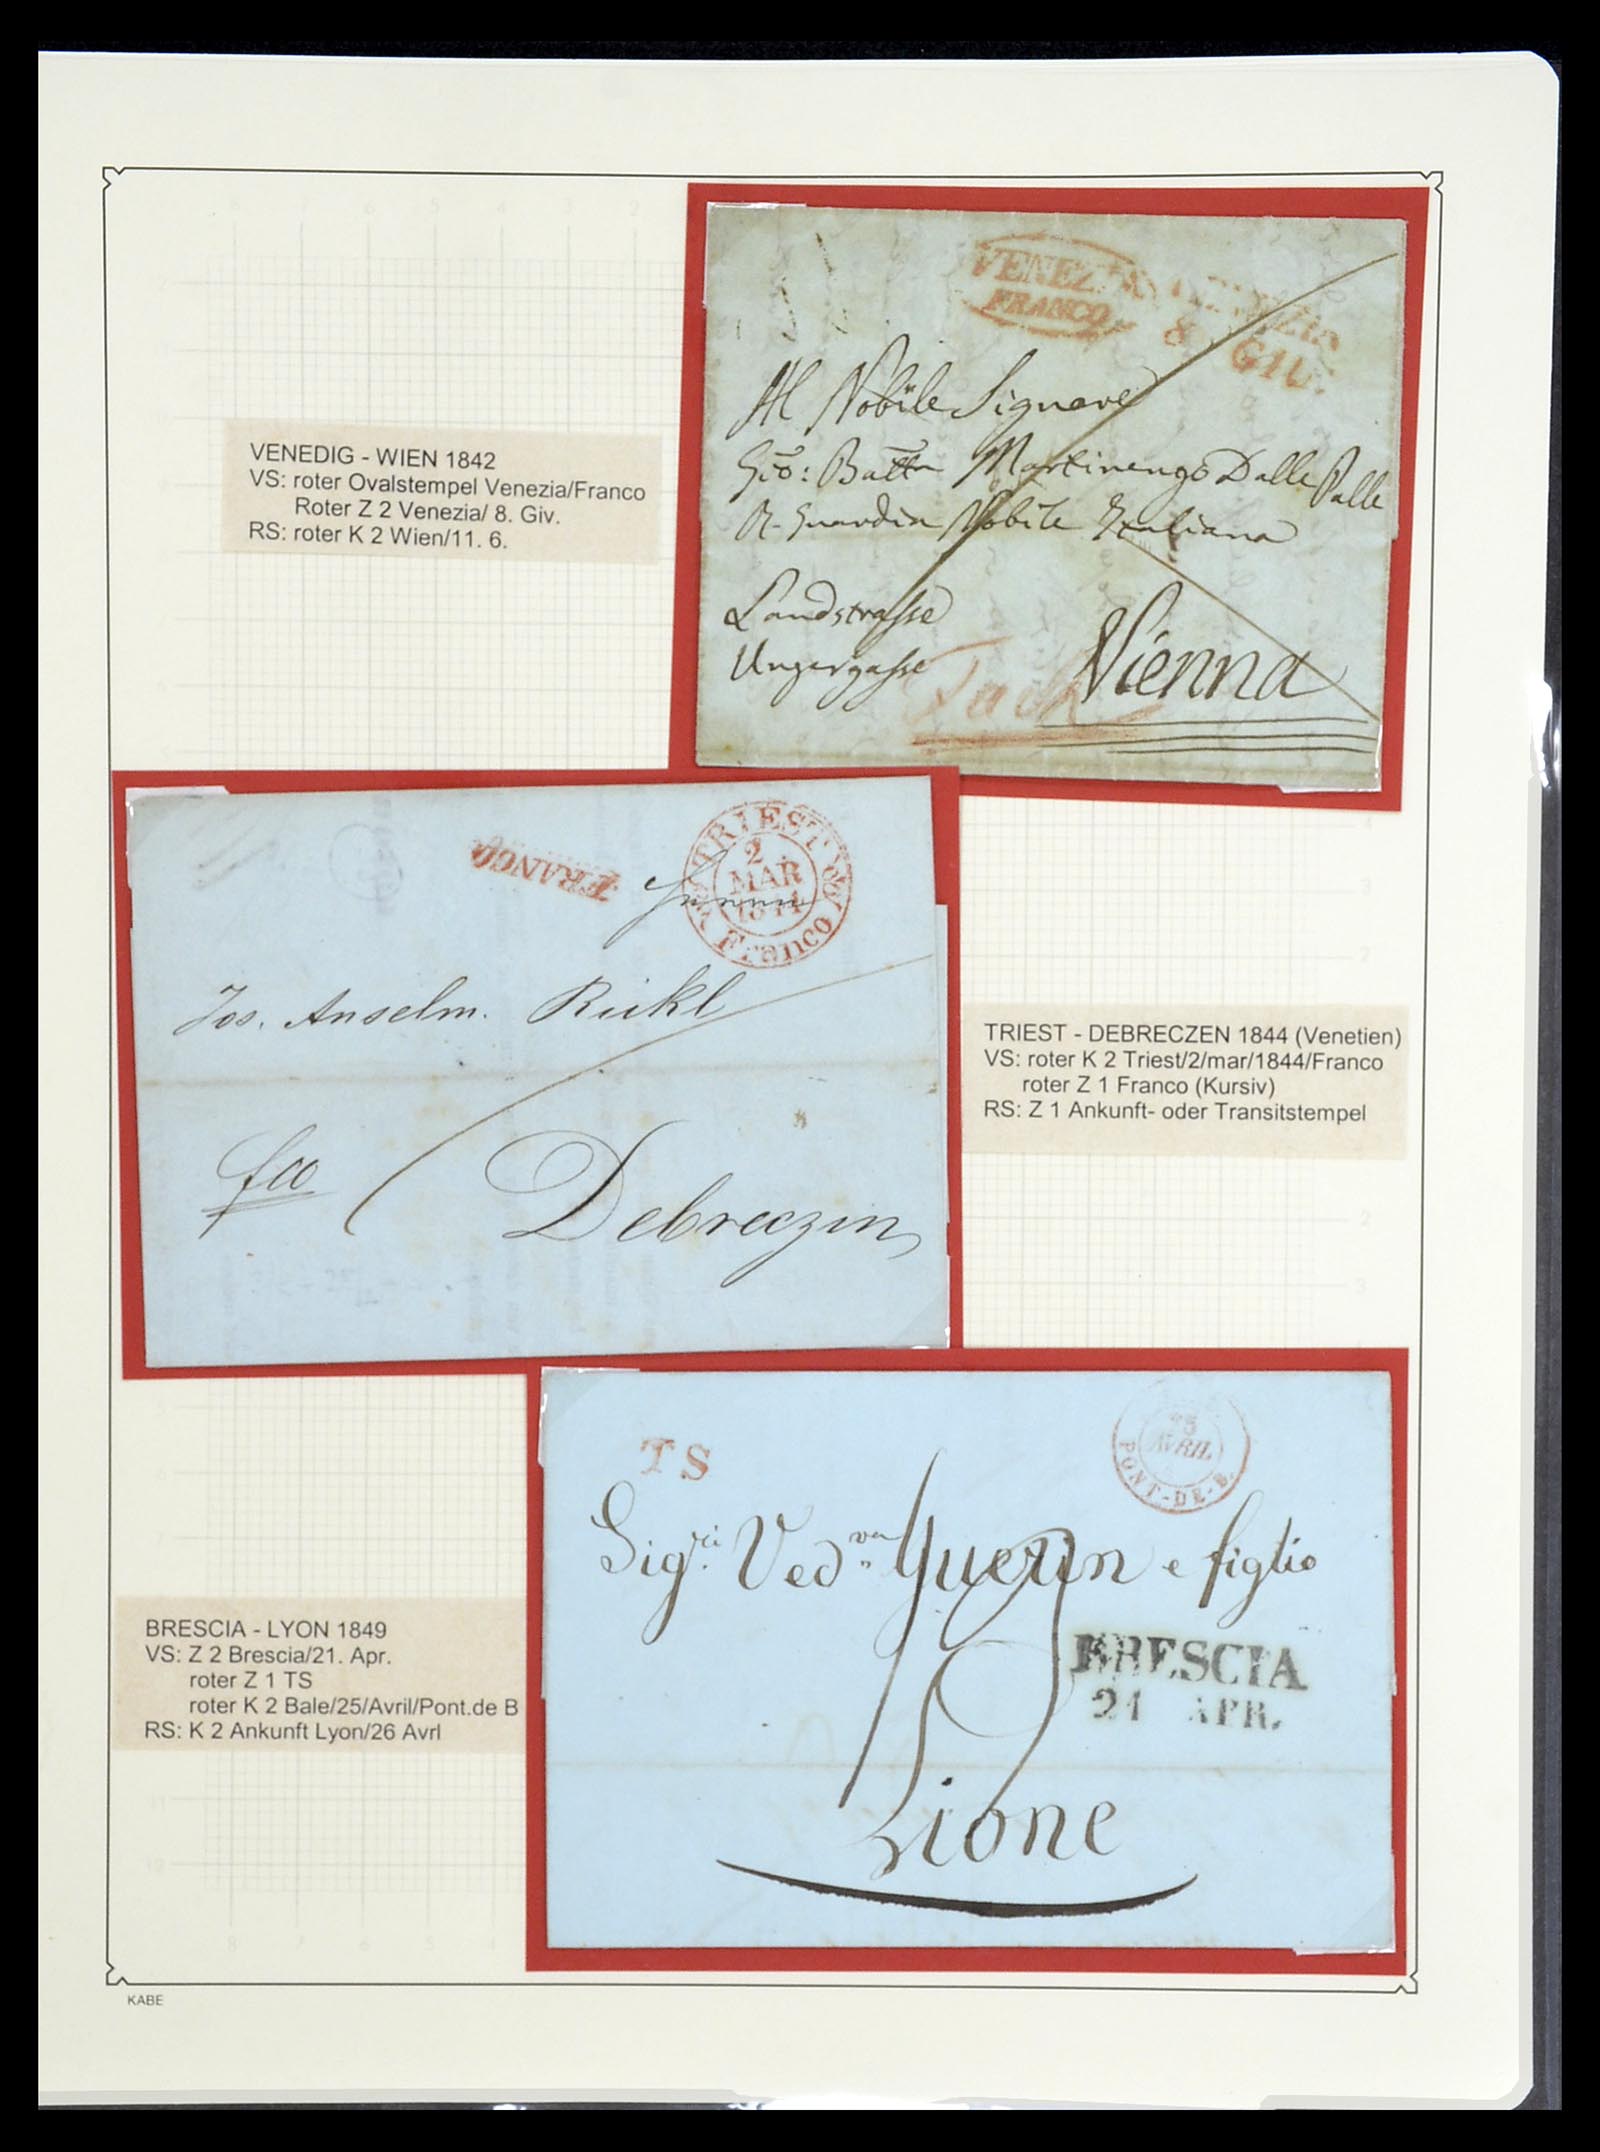 VENEZIA
FRANCO
VENEZIA
8 GIU.
Al Nobile Signore
Gio: Batta Martinengo Dalle Palle
R. Guardia Nobile Italiana
Landstrasse
Ungergasse
Vienna
VENEDIG - WIEN 1842
VS: roter Ovalstempel Venezia/Franco
Roter Z 2 Venezia/ 8. Giv.
RS: roter K 2 Wien/11. 6.
FRANCO
TRIEST
2
MAR
1844
Franco
Jos. Anselm. Rickl
fco
Debreczin
TRIEST - DEBRECZEN 1844 (Venetien)
VS: roter K 2 Triest/2/mar/1844/Franco
roter Z 1 Franco (Kursiv)
RS: Z 1 Ankunft- oder Transitstempel
TS
25
AVRIL
PONT-DE-B.
Sigri. Vedva Guerin e figlio
BRESCIA
21 APR.
Lione
BRESCIA - LYON 1849
VS: Z 2 Brescia/21. Apr.
roter Z 1 TS
roter K 2 Bale/25/Avril/Pont.de B
RS: K 2 Ankunft Lyon/26 Avrl
KABE